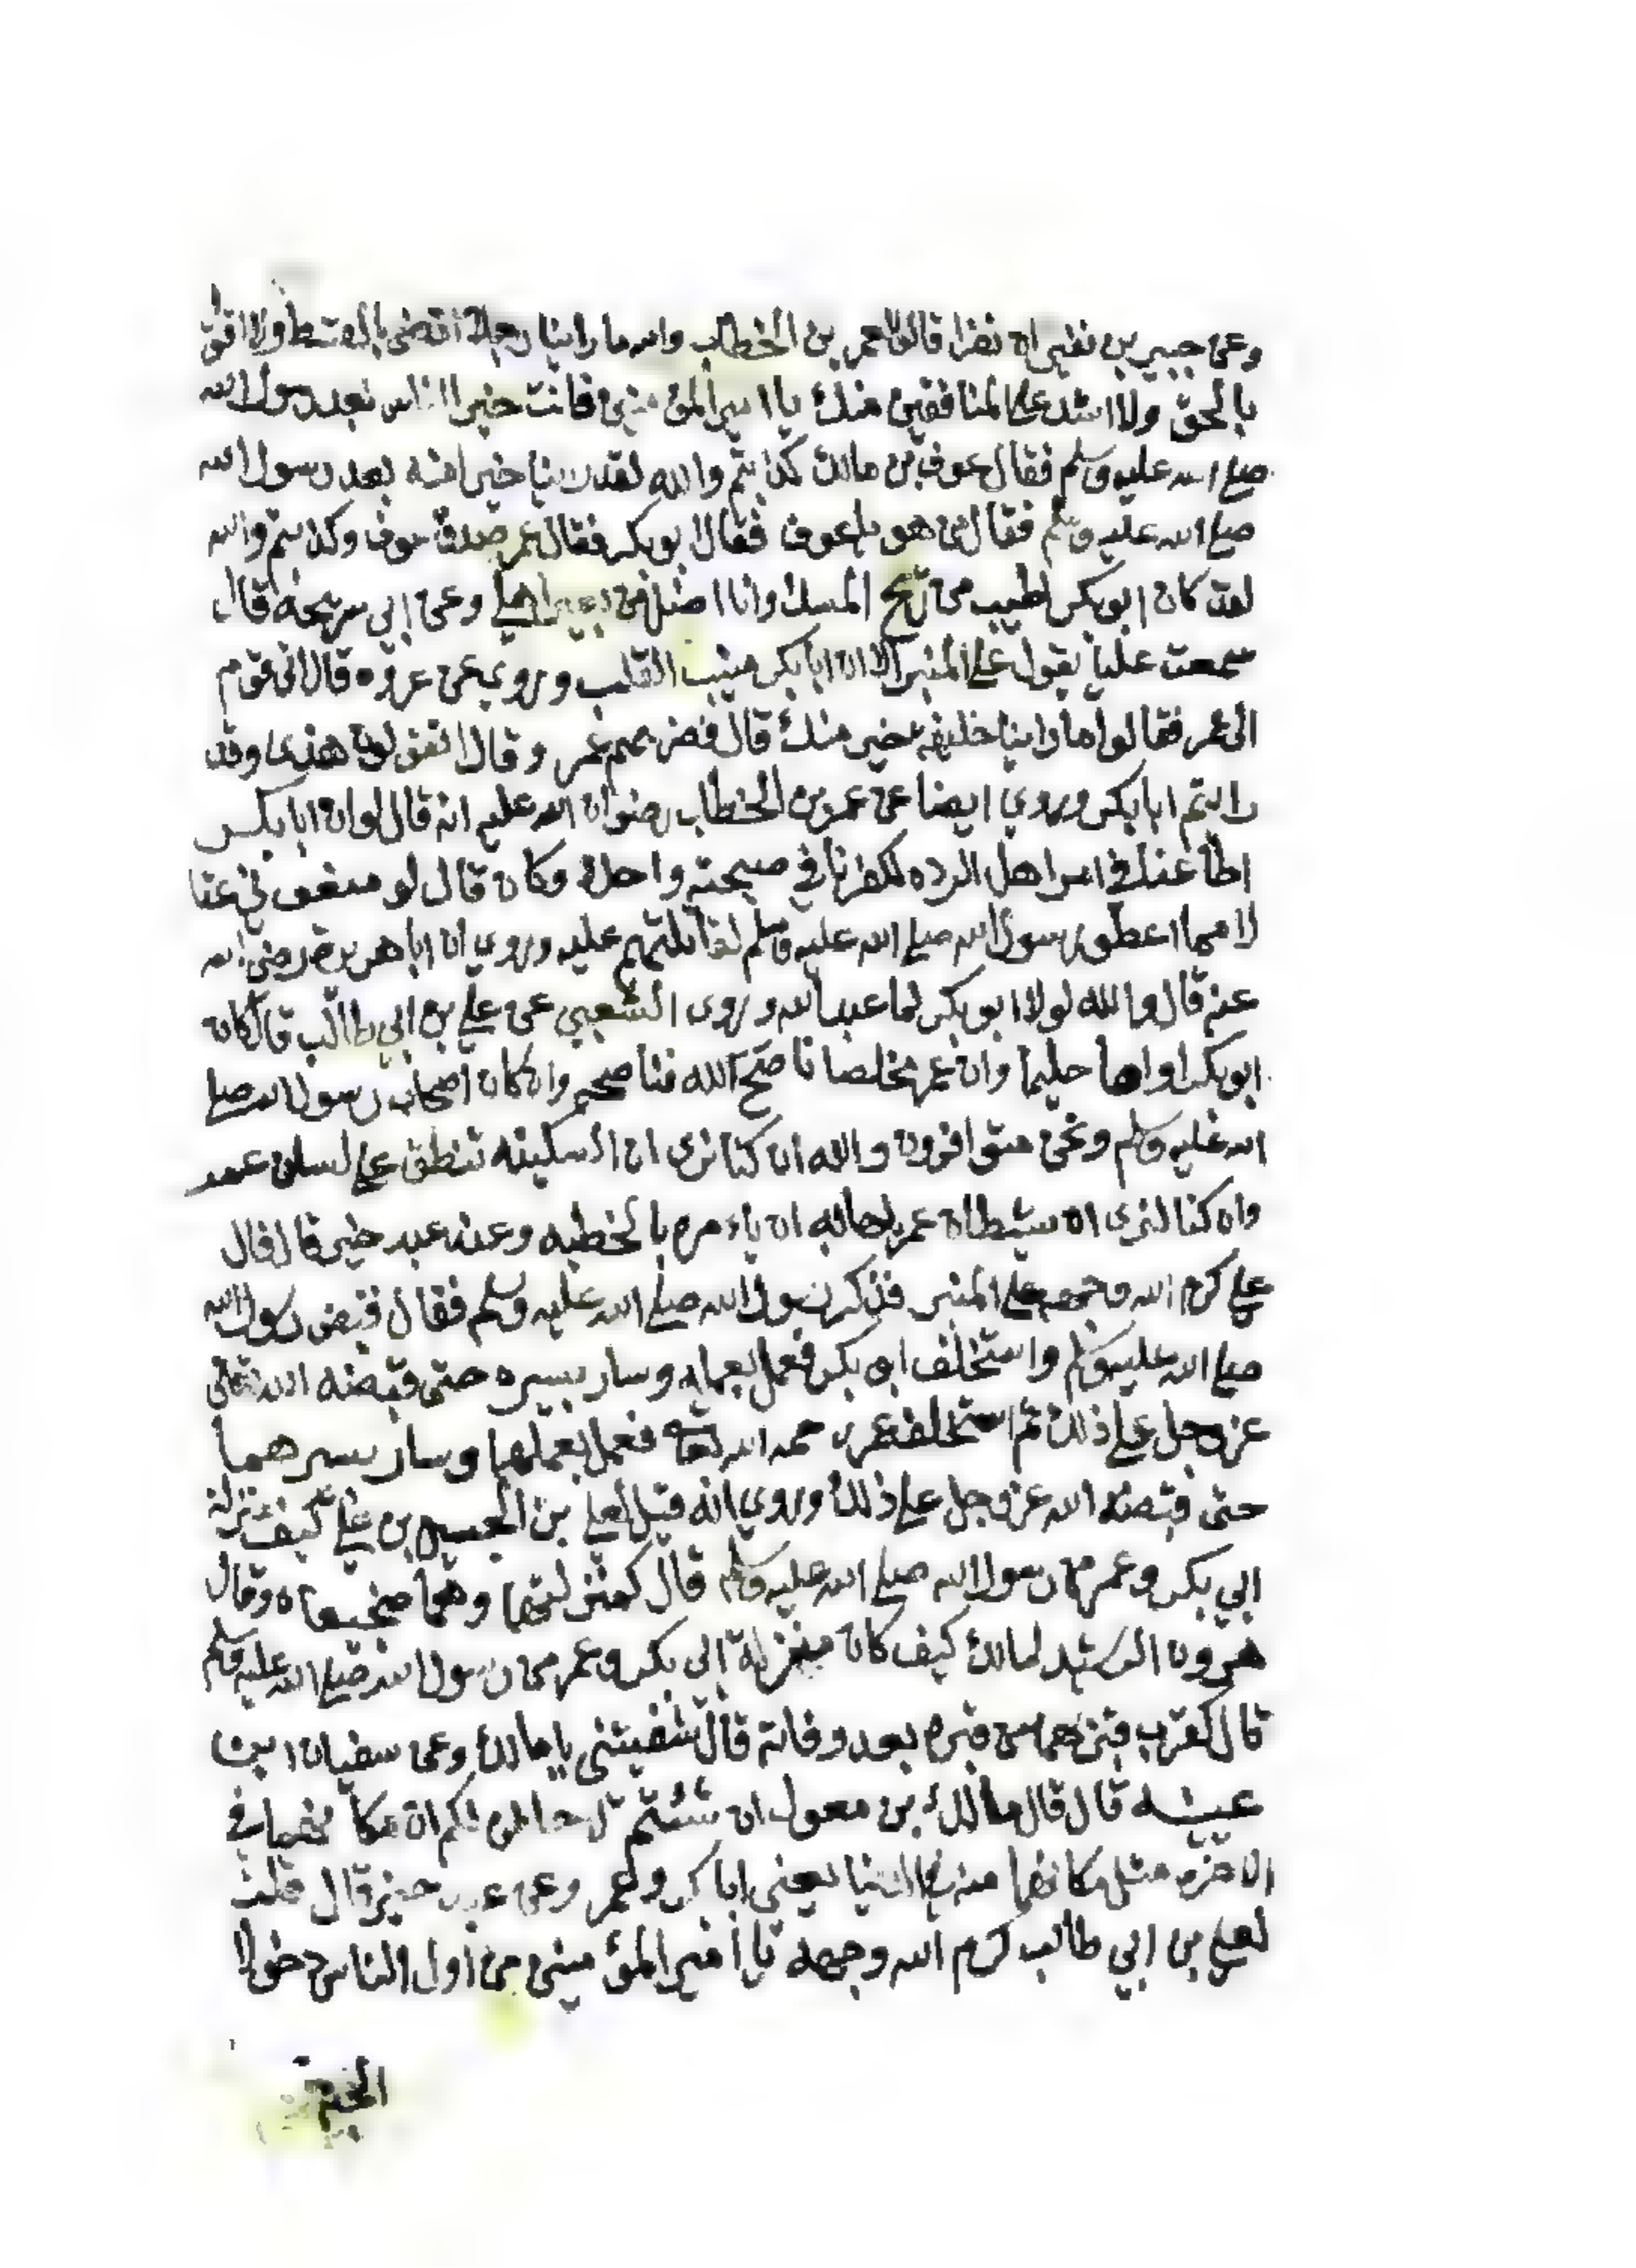 وعن جبير بن نفير ان نفرا قالوا لعمر بن الخطاب والله ما راينا رجلا اقضى بالقسط ولا اقول
بالحق ولا اشد على المنافقين منك يا امير المؤمنين فانت خير الناس بعد رسول الله
صلى الله عليه وسلم فقال عوف بن مالك كذبتم والله لقد راينا خيرا منه بعد رسول الله
صلى الله عليه وسلم فقال من هو يا عوف فقال ابو بكر فقال عمر صدق عوف وكذبتم والله
لقد كان ابو بكر اطيب من ريح المسك وانا اضل من بعير اهلي وعن ابي سريحة قال
سمعت عليا يقول على المنبر الا ان ابا بكر منيب القلب وروي عن عروه قال اتى قوم
الى عمر فقالوا ما راينا خليفة خير منك قال فضربهم عمر وقال اتقولون هذا وقد
رايتم ابا بكر وروي ايضا عن عمر بن الخطاب رضوان الله عليه انه قال لو ان ابا بكر
اطاعنا في امر اهل الرده لكفرنا في صبيحة واحدة وكان قال لو منعوني عقا
لا مما اعطوا رسول الله صلى الله عليه وسلم لقاتلتهم عليه وروي ان ابا هريرة رضي الله
عنه قال والله لولا ابو بكر لما عبد الله وروى الشعبي عن علي بن ابي طالب قال كان
ابو بكر اواها حليما وان عمر مخلصا ناصح الله فناصحه وان كان اصحاب رسول الله صلى
الله عليه وسلم ونحن متوافرون والله ان كنا نرى ان السكينه تنطق على لسان عمر
وان كنا لنرى ان شيطان عمر يهابه ان يامره بالخطيه وعن عبد خير قال قال
علي كرم الله وجهه على المنبر فذكر رسول الله صلى الله عليه وسلم فقال قبض رسول الله
صلى الله عليه وسلم واستخلف ابو بكر فعمل بعمله وسار بسيره حتى قبضه الله تعالى
عز وجل على ذلك ثم استخلف عمر رحمه الله تعالى فعمل بعملهما وسار بسيرهما
حتى قبضه الله عز وجل على ذلك وروي انه قيل لعلي بن الحسين بن علي كيف منزلة
ابي بكر وعمر من رسول الله صلى الله عليه وسلم قال كمنزلتهما وهما ضجيعاه وقال
هرون الرشيد لمالك كيف كان منزلة ابي بكر وعمر من رسول الله صلى الله عليه وسلم
قال كقرب قبريهما من قبره بعد وفاته قال شفيتني يا مالك وعن سفيان ابن
عيينه قال قال مالك بن مغول ان شئتم لكم ان مكانهما في
الاخرة مثل مكانهما منه في الدنيا يعني ابا بكر وعمر وعن عبد خير قال قلت
لعلي بن ابي طالب كرم الله وجهه يا امير المؤمنين من اول الناس دخولا
الجنة